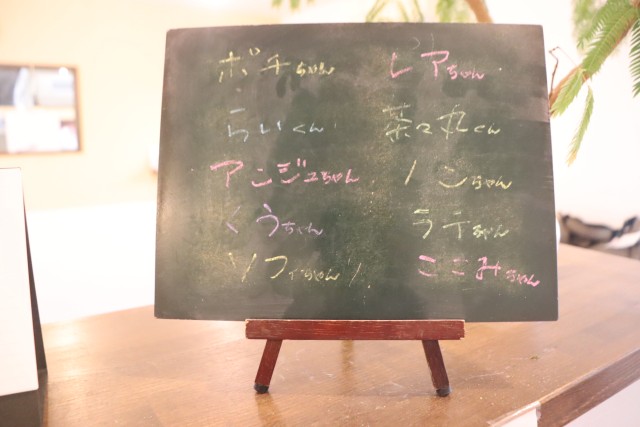 ボチちゃん
らいくん
アンジュちゃん
くうちゃん
ソフィちゃん
レアちゃん
茶々丸くん
ノンちゃん
ラテちゃん
ここみちゃん